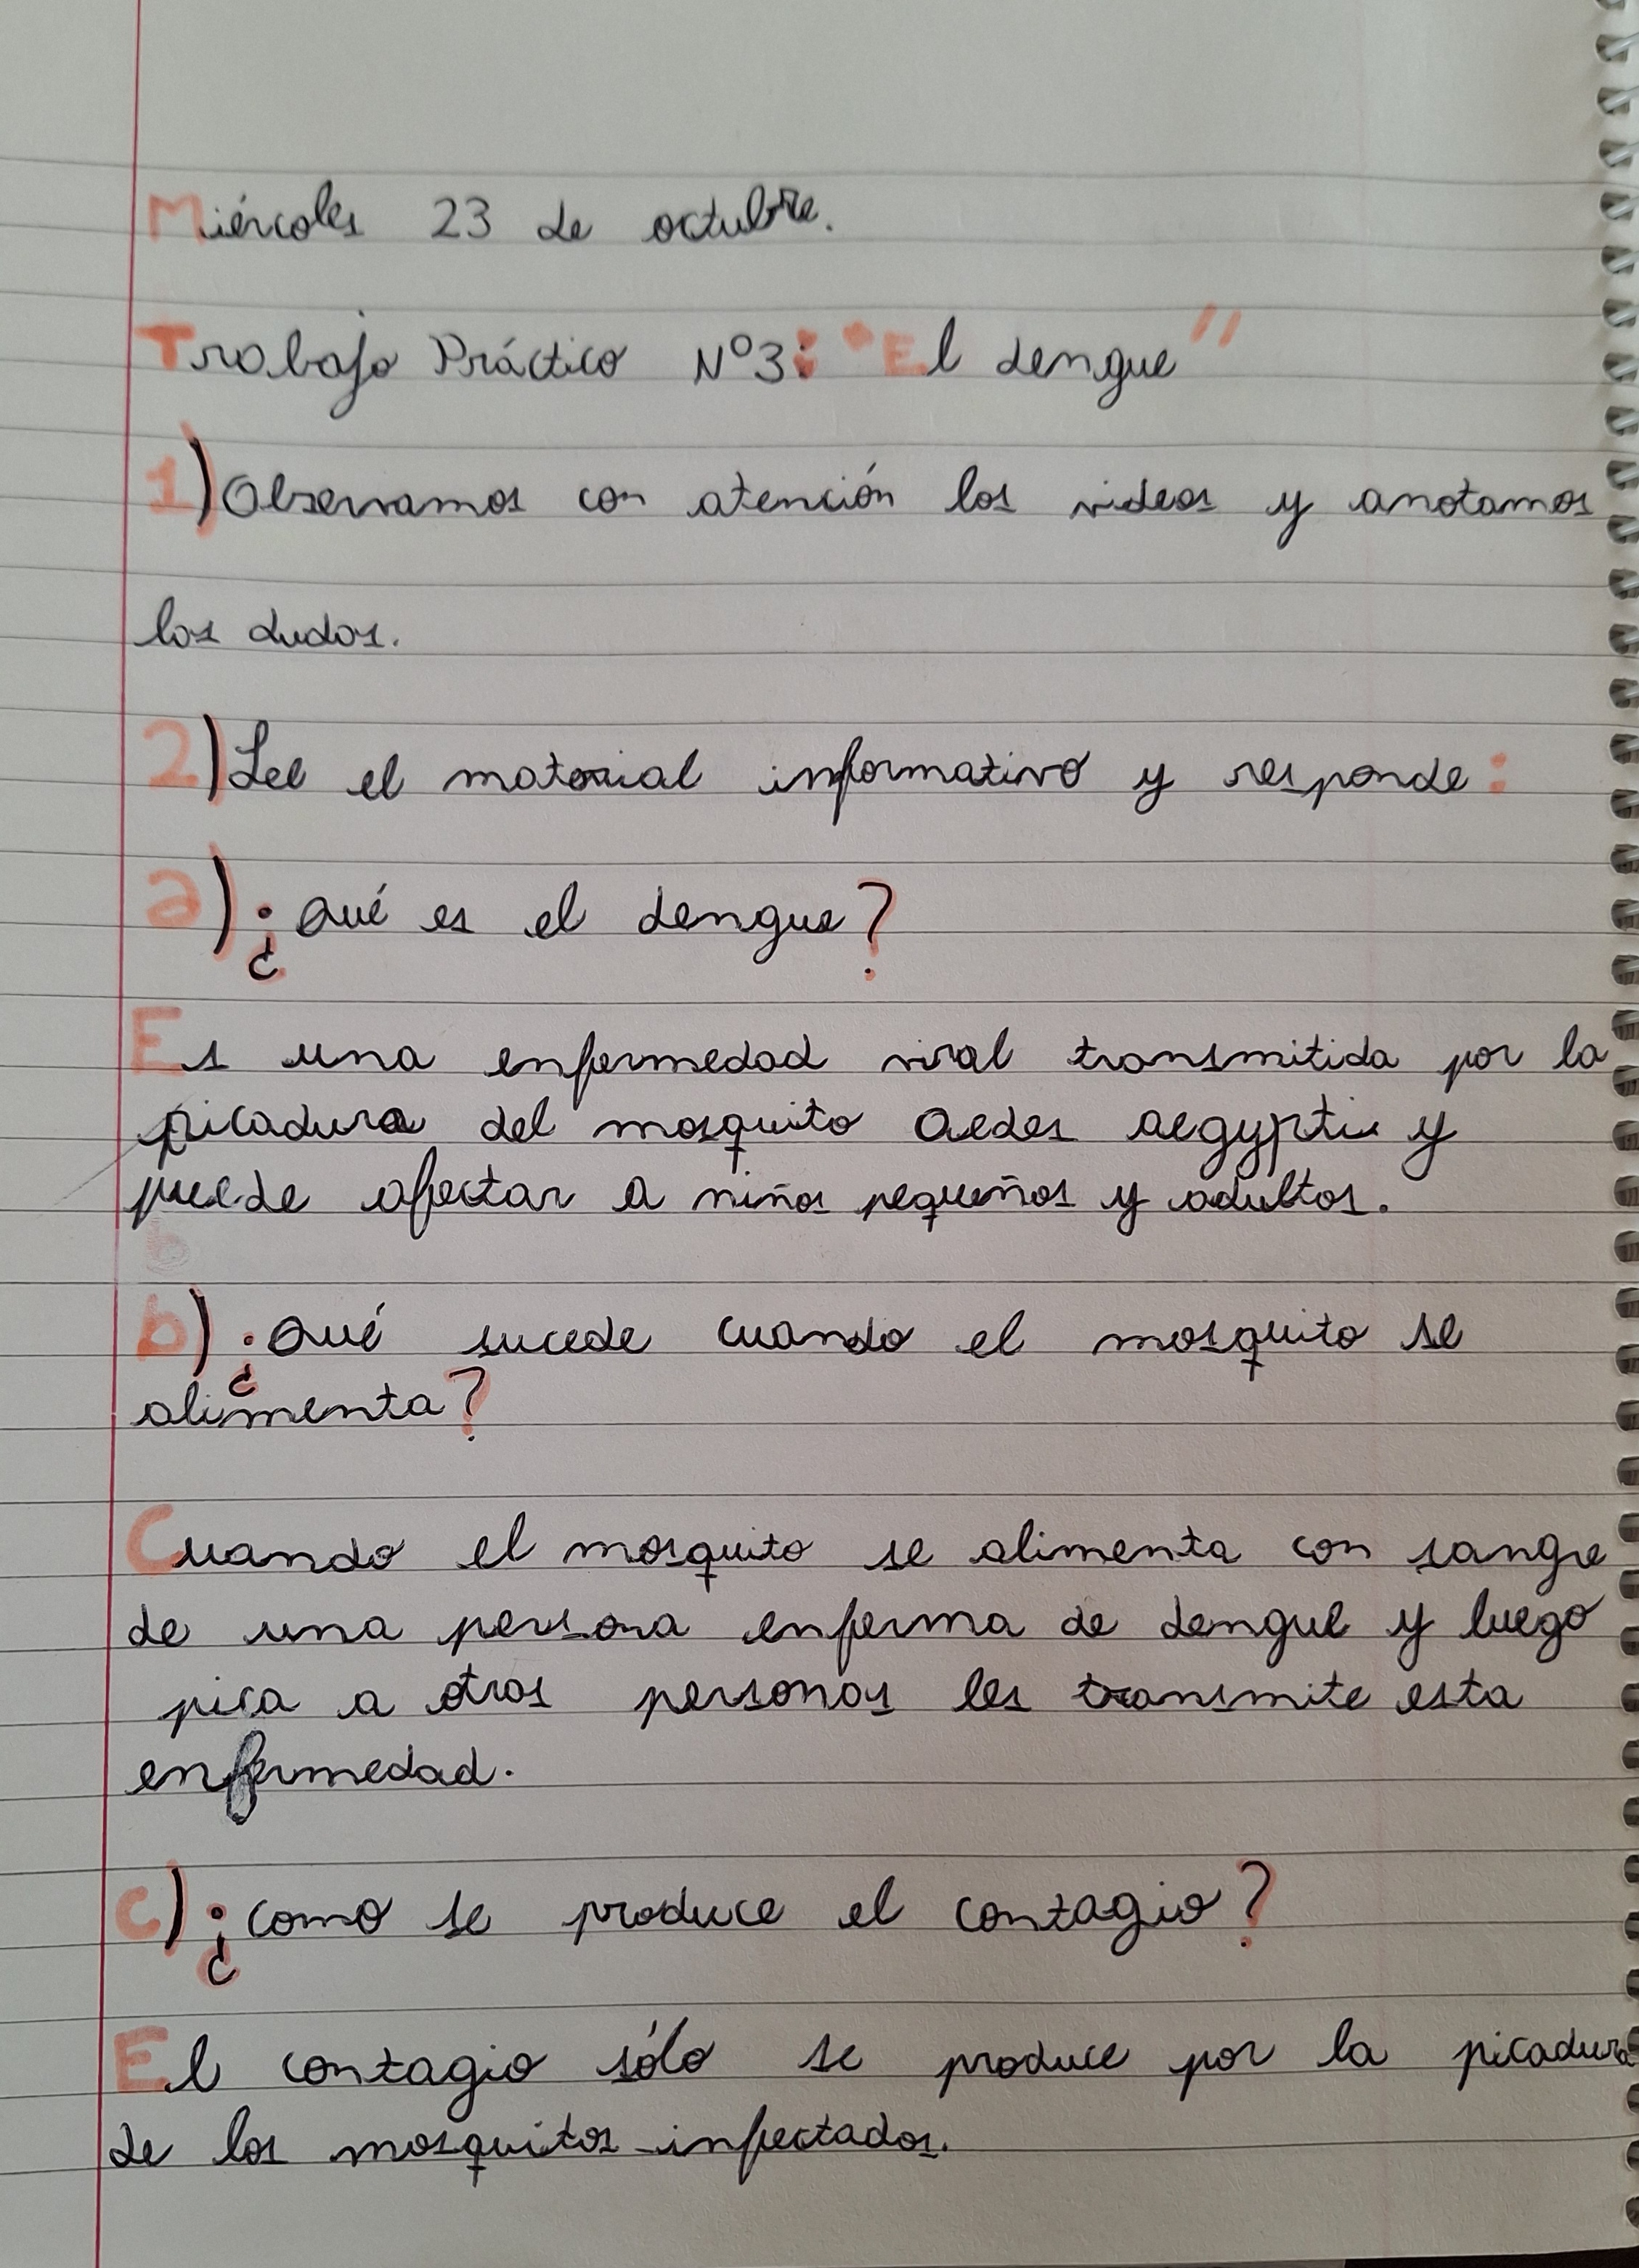 Miércoles 23 de octubre.
Trabajo Práctico Nº3: "El dengue"
1) Observamos con atención los videos y anotamos
las dudas.
2) Lee el material informativo y responde:
a) ¿Qué es el dengue?
Es una enfermedad viral transmitida por la
picadura del mosquito Aedes aegypti y
puede afectar a niños pequeños y adultos.
b) ¿Qué sucede cuando el mosquito se
alimenta?
Cuando el mosquito se alimenta con sangre
de una persona enferma de dengue y luego
pica a otras personas les transmite esta
enfermedad.
c) ¿como se produce el contagio?
El contagio sólo se produce por la picadura
de los mosquitos infectados.